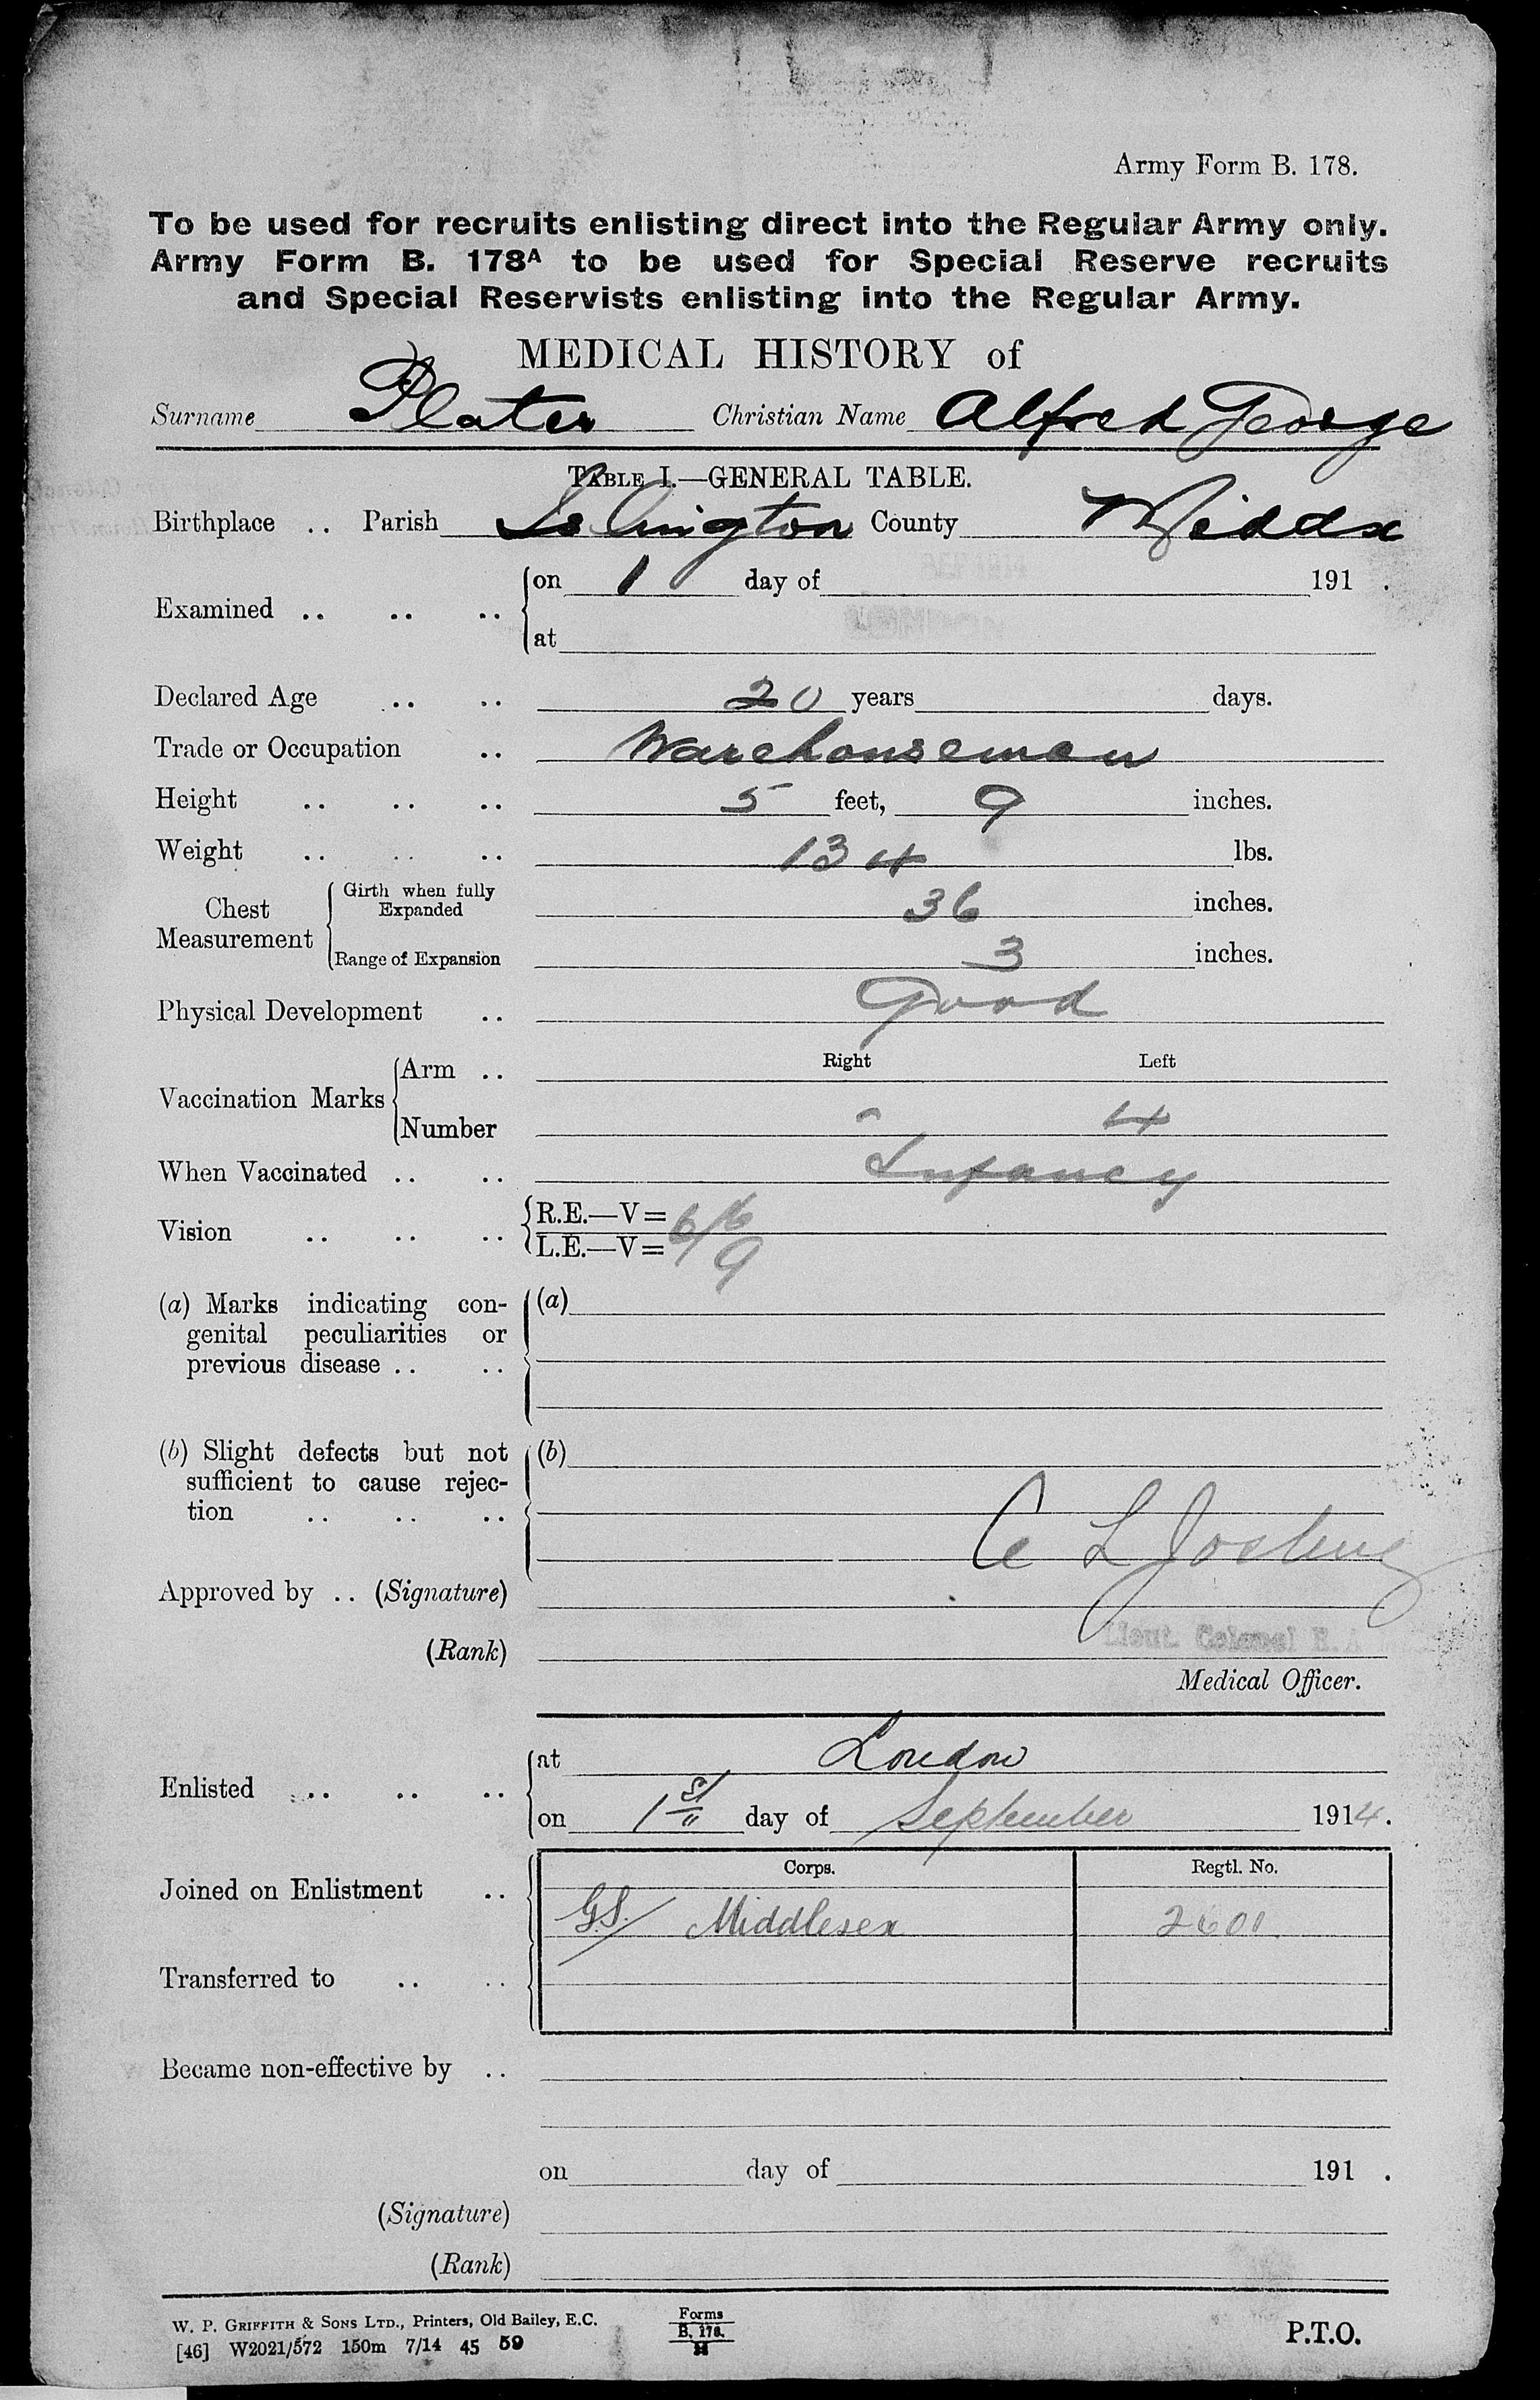 Army Form B. 178.
To be used for recruits enlisting direct into the Regular Army only.
Army Form B. 178A to be used for Special Reserve recruits
and Special Reservists enlisting into the Regular Army.
MEDICAL HISTORY of
Surname Plater Christian Name Alfred George
TABLE I.—GENERAL TABLE.
Birthplace .. Parish Islington County Middx
Examined .. .. .. on 1 day of 191 .
at
Declared Age .. .. 20 years days.
Trade or Occupation .. Warehouseman
Height .. .. .. 5 feet, 9 inches.
Weight .. .. .. 134 lbs.
Chest Measurement Girth when fully Expanded 36 inches.
Range of Expansion 3 inches.
Physical Development .. Good
Right Left
Vaccination Marks Arm ..
Number 4
When Vaccinated .. .. Infancy
Vision .. .. .. R.E.—V= 6/6
L.E.—V= 6/9
(a) Marks indicating con- (a)
genital peculiarities or
previous disease .. ..
(b) Slight defects but not (b)
sufficient to cause rejec-
tion .. .. ..
C L Josling
Approved by .. (Signature)
Lieut. Colonel R.A
(Rank)
Medical Officer.
Enlisted .. .. .. at London
on 1st day of September 1914.
Corps. Regtl. No.
Joined on Enlistment .. G.S./ Middlesex 2601
Transferred to .. ..
Became non-effective by ..
on day of 191 .
(Signature)
(Rank)
W. P. GRIFFITH & SONS LTD., Printers, Old Bailey, E.C.
[46] W2021/572 150m 7/14 45 59
Forms
B. 178.
P.T.O.